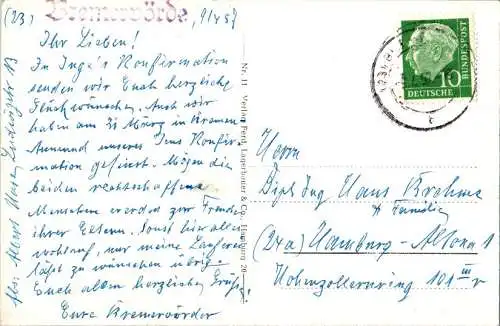 (23) Bremervörde, 9/4 57
Ihr Lieben!
In Inge's Konfirmation
senden wir Euch herzliche
Glückwünsche. Auch wir
haben am 31 März in Bremen
unseres Jens Konfir-
mation gefeiert. Mögen die
beiden rechtschaffene
Menschen werden zur Freude
ihrer Eltern. Sonst hier alles
wohlauf, nur meine
läßt zu wünschen übrig.
Euch allen herzliche Grüße,
Eure Bremervörder
Abs:
Nr. 11 Verlag Ferd. Lagerbauer & Co., Hamburg 26
DEUTSCHE
BUNDESPOST
10
Herrn
Dipl. Ing Hans Brehme
& Familie
(24a) Hamburg-Altona 1
Hohenzollernring 101 III r